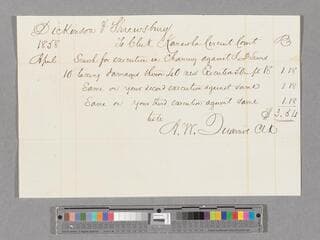 Dickinson & Shrewsbury
1858 To Clerk Kanawha Circuit Court Dr
April Search for execution in Chancery against
10 taxing damages thereon 20 new Execution 1.18
Same on your second execution against same 1.18
Same on your third execution against same 1.18
$ 3.54
A. W. Quarrier Clk